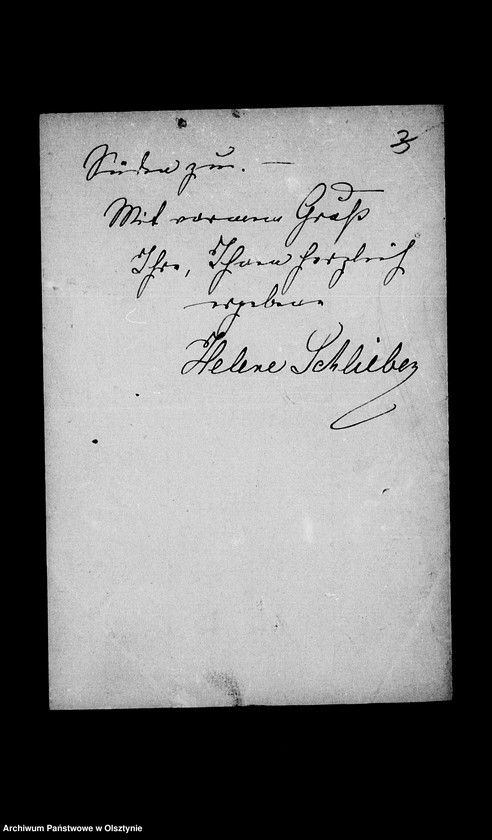 3
Süden zu. —
Mit warmem Gruß
Ihre, Ihnen herzlich
ergebene
Helene Schlieben
Archiwum Państwowe w Olsztynie